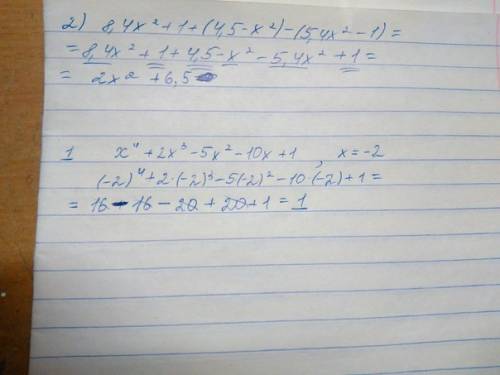 2) 8,4x² + 1 + (4,5 - x²) - (5,4x² - 1) =
= 8,4x² + 1 + 4,5 - x² - 5,4x² + 1 =
= 2x² + 6,5
1 x⁴ + 2x³ - 5x² - 10x + 1, x = -2
(-2)⁴ + 2·(-2)³ - 5(-2)² - 10·(-2) + 1 =
= 16 - 16 - 20 + 20 + 1 = 1